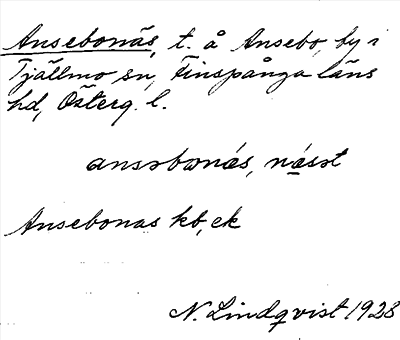 Ansebonäs, t. å Ansebo, by i
Tjällmo sn, Finspånga läns
hd, Österg. l.
anssbonǝ́s, nǝsst
Ansebonas kb, ek
N. Lindqvist 1928